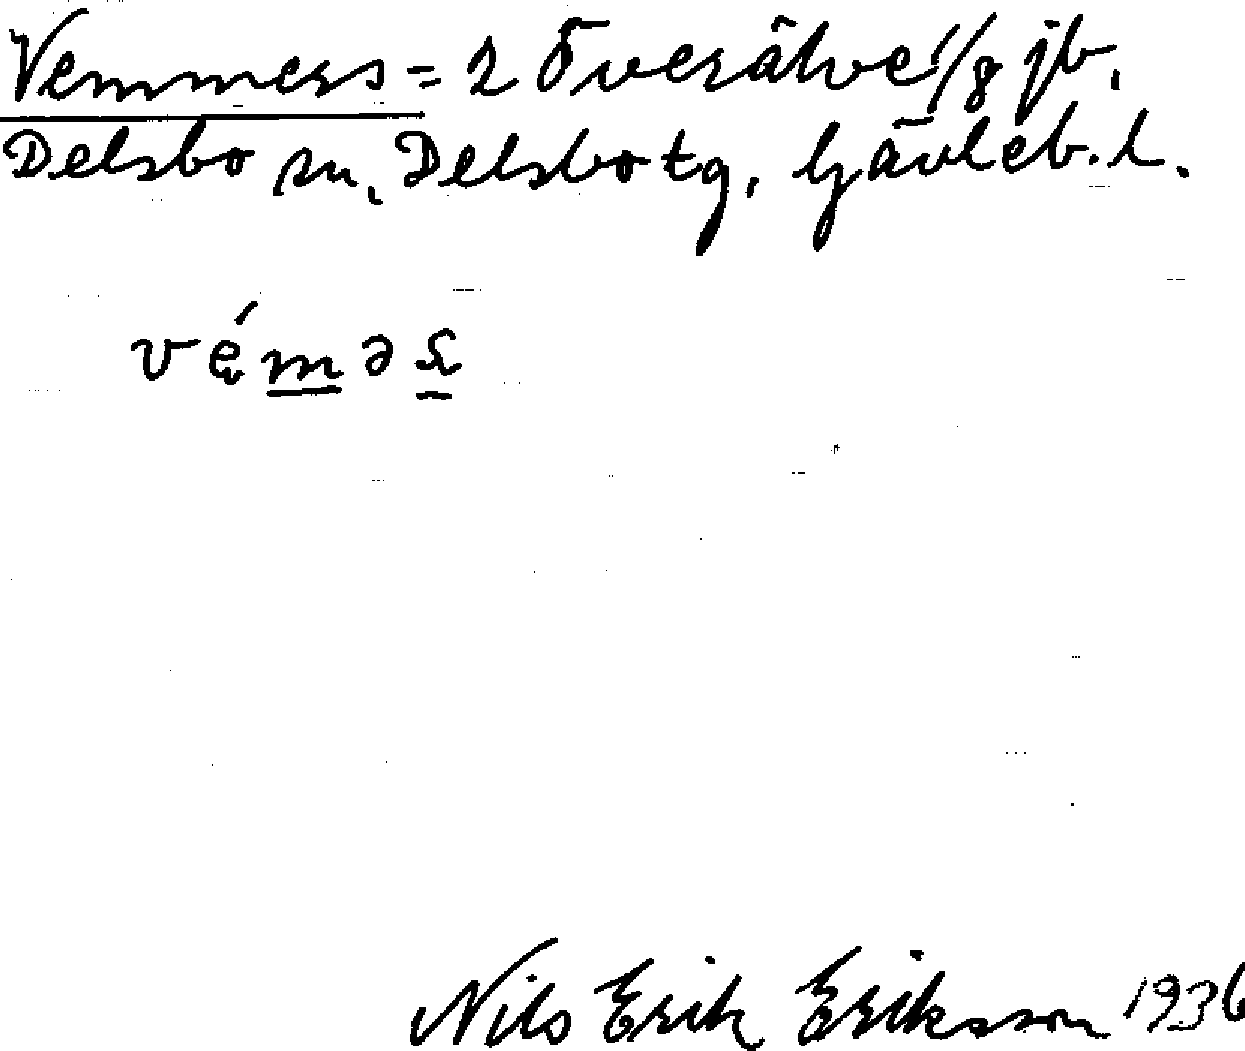 Vemmers = 2 Överälve 1/8 jb.
Delsbo sn, Delsbo tg, Gävleb. l.
vémə
Nils Erik Eriksson 1936